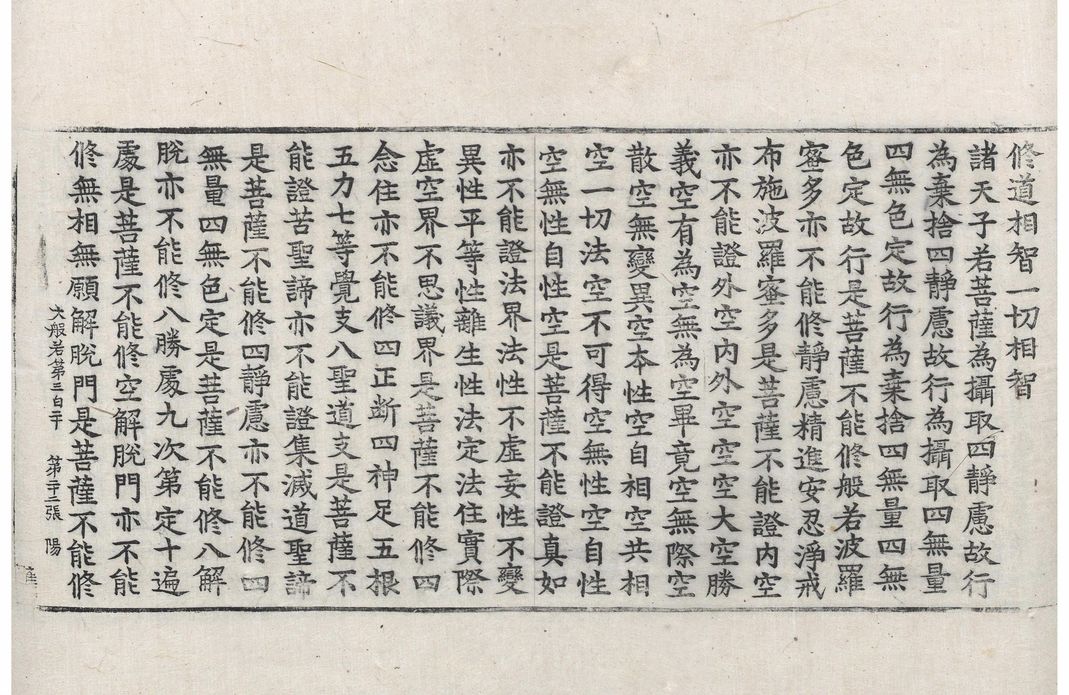 修道相智一切相智
諸天子若菩薩為攝取四靜慮故行
為棄捨四靜慮故行為攝取四無量
四無色定故行為棄捨四無量四無
色定故行是菩薩不能修般若波羅
蜜多亦不能修靜慮精進安忍淨戒
布施波羅蜜多是菩薩不能證內空
亦不能證外空內外空空空大空勝
義空有為空無為空畢竟空無際空
散空無變異空本性空自相空共相
空一切法空不可得空無性空自性
空無性自性空是菩薩不能證真如
亦不能證法界法性不虛妄性不變
異性平等性離生性法定法住實際
虛空界不思議界是菩薩不能修四
念住亦不能修四正斷四神足五根
五力七等覺支八聖道支是菩薩不
能證苦聖諦亦不能證集滅道聖諦
是菩薩不能修四靜慮亦不能修四
無量四無色定是菩薩不能修八解
脫亦不能修八勝處九次第定十遍
處是菩薩不能修空解脫門亦不能
大般若第三百二十 第二十二張 陽
修無相無願解脫門是菩薩不能修